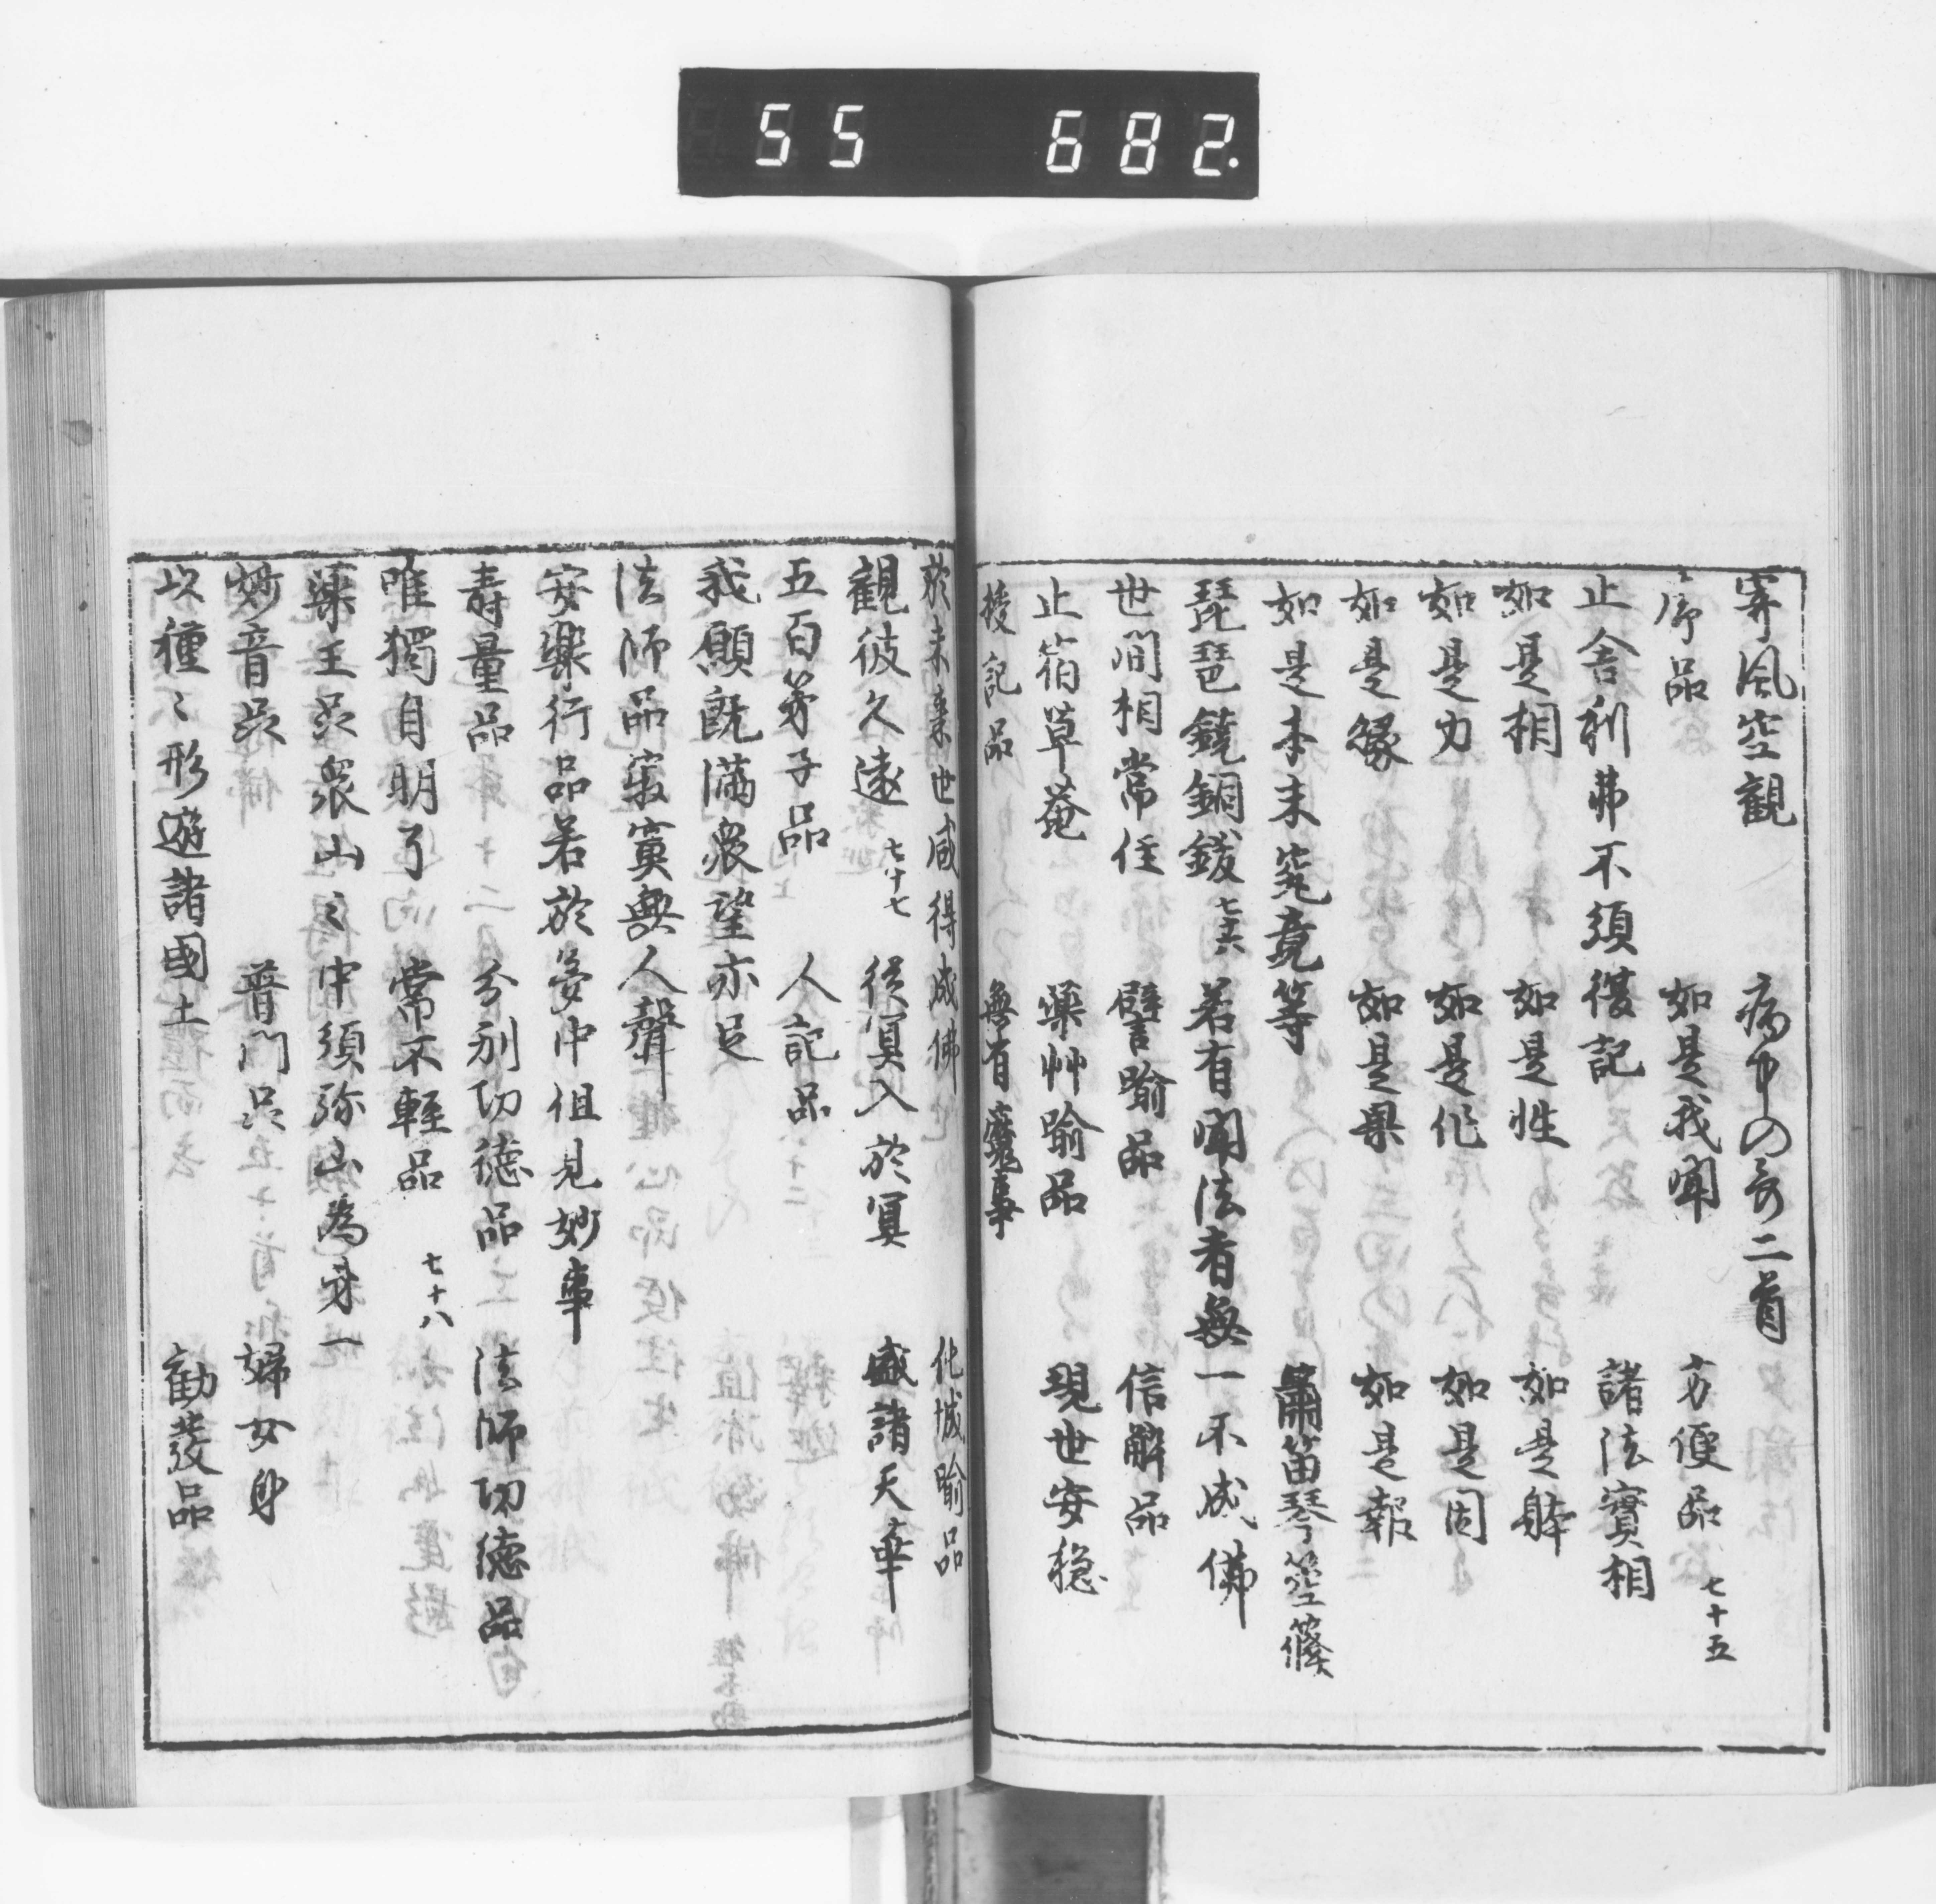 55 682.
寄風空観 病中の哥二首
序品 如是我聞 方便品 七十五
止舎利弗不須復記 諸法實相
如是相 如是性 如是躰
如是力 如是作 如是因
如是縁 如是果 如是報
如是本末究竟等 簫笛琴箜篌
琵琶鐃銅鈸 七十六 若有聞法者無一不成佛
世間相常住 譬喩品 信解品
止宿草菴 薬艸喩品 現世安穏
授記品 無有魔事
於未来世咸得成佛 化城喩品
観彼久遠 七十七 従冥入於冥 盛諸天華
五百弟子品 人記品
我願既満衆望亦足
法師品 寂寞無人聲
安楽行品 若於夢中但見妙事
寿量品 分別功徳品 法師功徳品
唯獨自明了 常不軽品 七十八
薬王品 衆山〻中須弥山為第一
妙音品 普門品 婦女身
以種〻形遊諸國土 勧發品